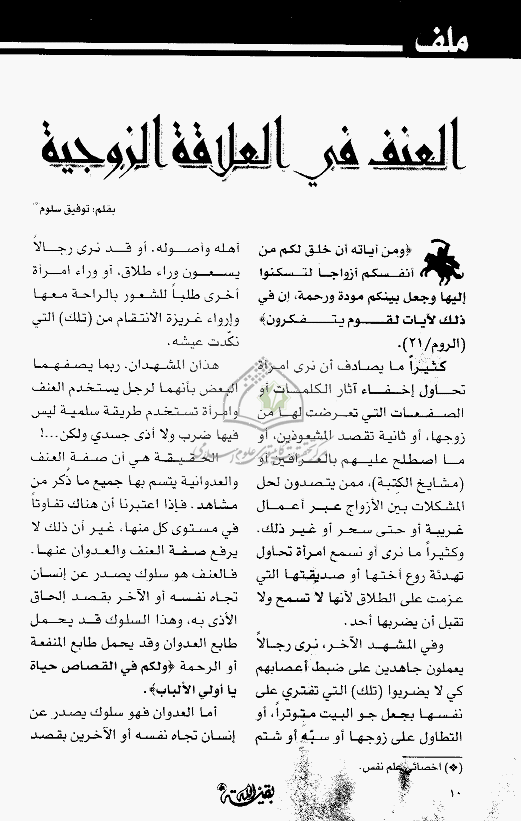 ملف
العنف في العلاقة الزوجية
بقلم: توفيق سلوم *
﴿ومن آياته أن خلق لكم من
أنفسكم أزواجاً لتسكنوا
إليها وجعل بينكم مودة ورحمة، إن في
ذلك لآيات لقوم يتفكرون﴾
(الروم/٢١).
كثيراً ما يصادف أن نرى امرأة
تحاول إخفاء آثار الكلمات أو
الصفعات التي تعرضت لها من
زوجها، أو ثانية تقصد المشعوذين، أو
ما اصطلح عليهم بالعرافين أو
(مشايخ الكتبة)، ممن يتصدون لحل
المشكلات بين الأزواج عبر أعمال
غريبة أو حتى سحر أو غير ذلك.
وكثيراً ما نرى أو نسمع امرأة تحاول
تهدئة روع أختها أو صديقتها التي
عزمت على الطلاق لأنها لا تسمح ولا
تقبل أن يضربها أحد.
وفي المشهد الآخر، نرى رجالاً
يعملون جاهدين على ضبط أعصابهم
كي لا يضربوا (تلك) التي تفتري على
نفسها بجعل جو البيت متوتراً، أو
التطاول على زوجها أو سبّه أو شتم
أهله وأصوله. أو قد نرى رجالاً
يسعون وراء طلاق، أو وراء امرأة
أخرى طلباً للشعور بالراحة معها
وإرواء غريزة الانتقام من (تلك) التي
نكّدت عيشه.
هذان المشهدان. ربما يصفهما
البعض بأنهما لرجل يستخدم العنف
وامرأة تستخدم طريقة سلمية ليس
فيها ضرب ولا أذى جسدي ولكن...!
الحقيقة هي أن صفة العنف
والعدوانية يتسم بها جميع ما ذُكر من
مشاهد. فإذا اعتبرنا أن هناك تفاوتاً
في مستوى كل منها، غير أن ذلك لا
يرفع صفة العنف والعدوان عنها.
فالعنف هو سلوك يصدر عن إنسان
تجاه نفسه أو الآخر بقصد إلحاق
الأذى به، وهذا السلوك قد يحمل
طابع العدوان وقد يحمل طابع المنفعة
أو الرحمة ﴿ولكم في القصاص حياة
يا أولي الألباب﴾.
أما العدوان فهو سلوك يصدر عن
إنسان تجاه نفسه أو الآخرين بقصد
(❖) اخصائي علم نفس.
بقية الله
١٠